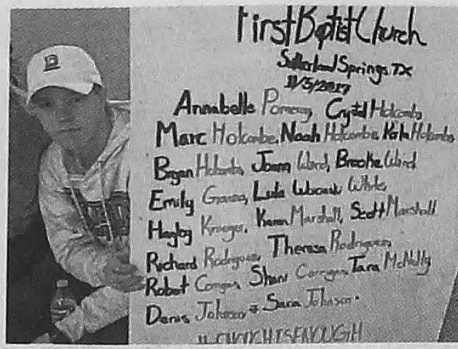 First Baptist Church
Sutherland Springs, TX
11/5/2017
Annabelle Pomeroy, Crystal Holcombe
Marc Holcombe, Noah Holcombe, Karla Holcombe
Bryan Holcombe, Joann Ward, Brooke Ward
Emily Garcia, Lula White
Haley Krueger, Karen Marshall, Scott Marshall
Richard Rodriguez, Theresa Rodriguez,
Robert Corrigan, Shani Corrigan, Tara McNulty
Dennis Johnson & Sara Johnson.
#ENOUGHISENOUGH